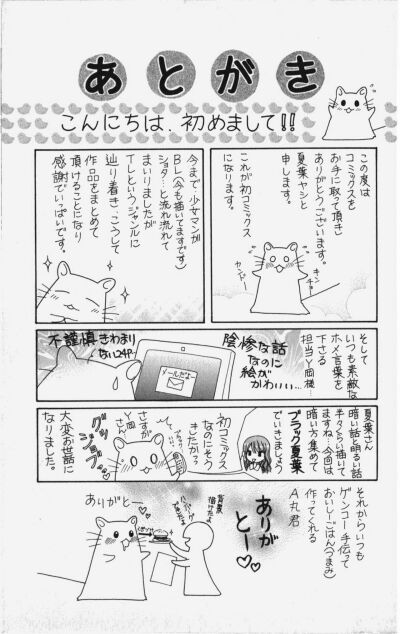 あとがき
こんにちは、初めまして!!
この度は
コミックスを
お手に取って頂き
ありがとうございます。
夏葉ヤシと
申します。
これが初コミックス
になります。
キンチョー
カンドー
今まで少女マンガ
BL(今も描いてますです)
ショタ…と流れ流れて
まいりましたが
TLというジャンルに
辿り着き、こうして
作品をまとめて
頂けることになり
感謝でいっぱいです。
そして
いつも素敵な
ホメ言葉を
下さる
担当Y岡様…
陰惨な話
なのに
絵が
かわいい…
メールだよー
不謹慎きわまり
ない24P…
夏葉さん
暗い話と明るい話
半々くらい描いて
ますね…今回は
暗い方集めて
ブラック夏葉
でいきましょう
初コミックス
なのにそう
きたかっ?
さすが
Y岡さん
グッ
ジョブ
大変お世話に
なりました。
それからいつも
ゲンコー手伝って
おいしーごはん(つまみ)
作ってくれる
A丸君
ありが
とー♡♡
背景
描けたよ
ハンバーグ
できたよ
ありがとー♡